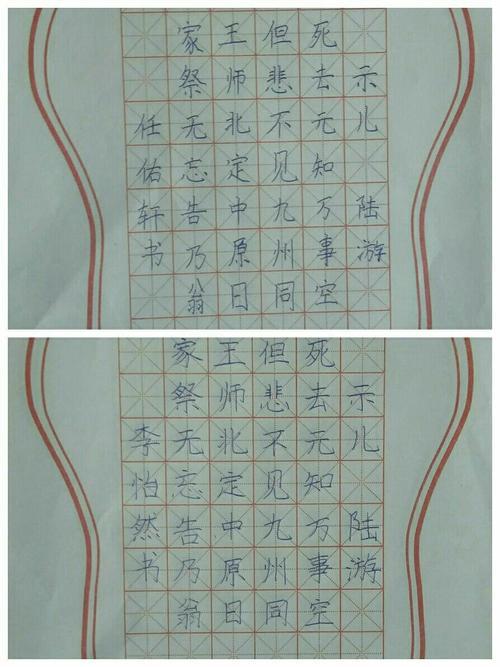 示儿
陆游
死去元知万事空
但悲不见九州同
王师北定中原日
家祭无忘告乃翁
任佑轩书
示儿
陆游
死去元知万事空
但悲不见九州同
王师北定中原日
家祭无忘告乃翁
李怡然书